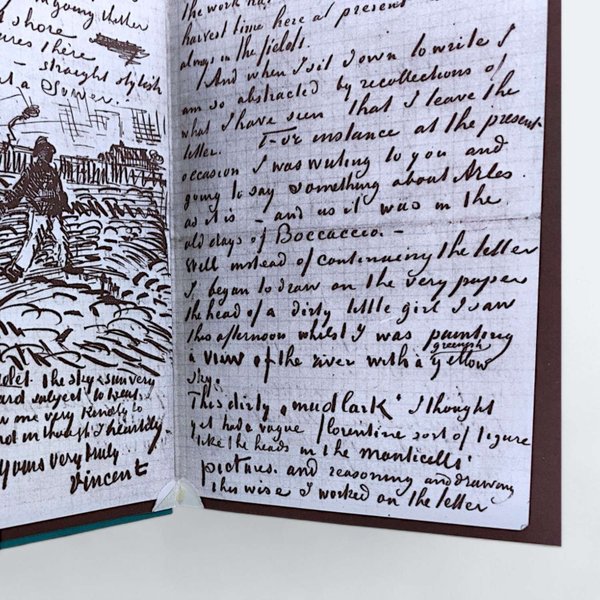 going letter
shore
ures there
- straight stylish
t a Sower.
olet. The sky & sun very
ard subject to treat.
me very kindly to
nd in thought I heartily
yours very truly
Vincent
the work
harvest time here at present
always in the fields.
And when I sit down to write I
am so abstracted by recollections of
what I have seen that I leave the
letter. For instance at the present
occasion I was writing to you and
going to say something about Arles
as it is - and as it was in the
old days of Boccaccio. -
Well instead of continuing the letter
I began to draw on the very paper
the head of a dirty little girl I saw
this afternoon whilst I was painting
a view of the river with a greenish yellow
sky.
This dirty "mudlark" I thought
yet had a vague florentine sort of figure
like the heads in the monticelli
pictures. and reasoning and drawing
this wise I worked on the letter